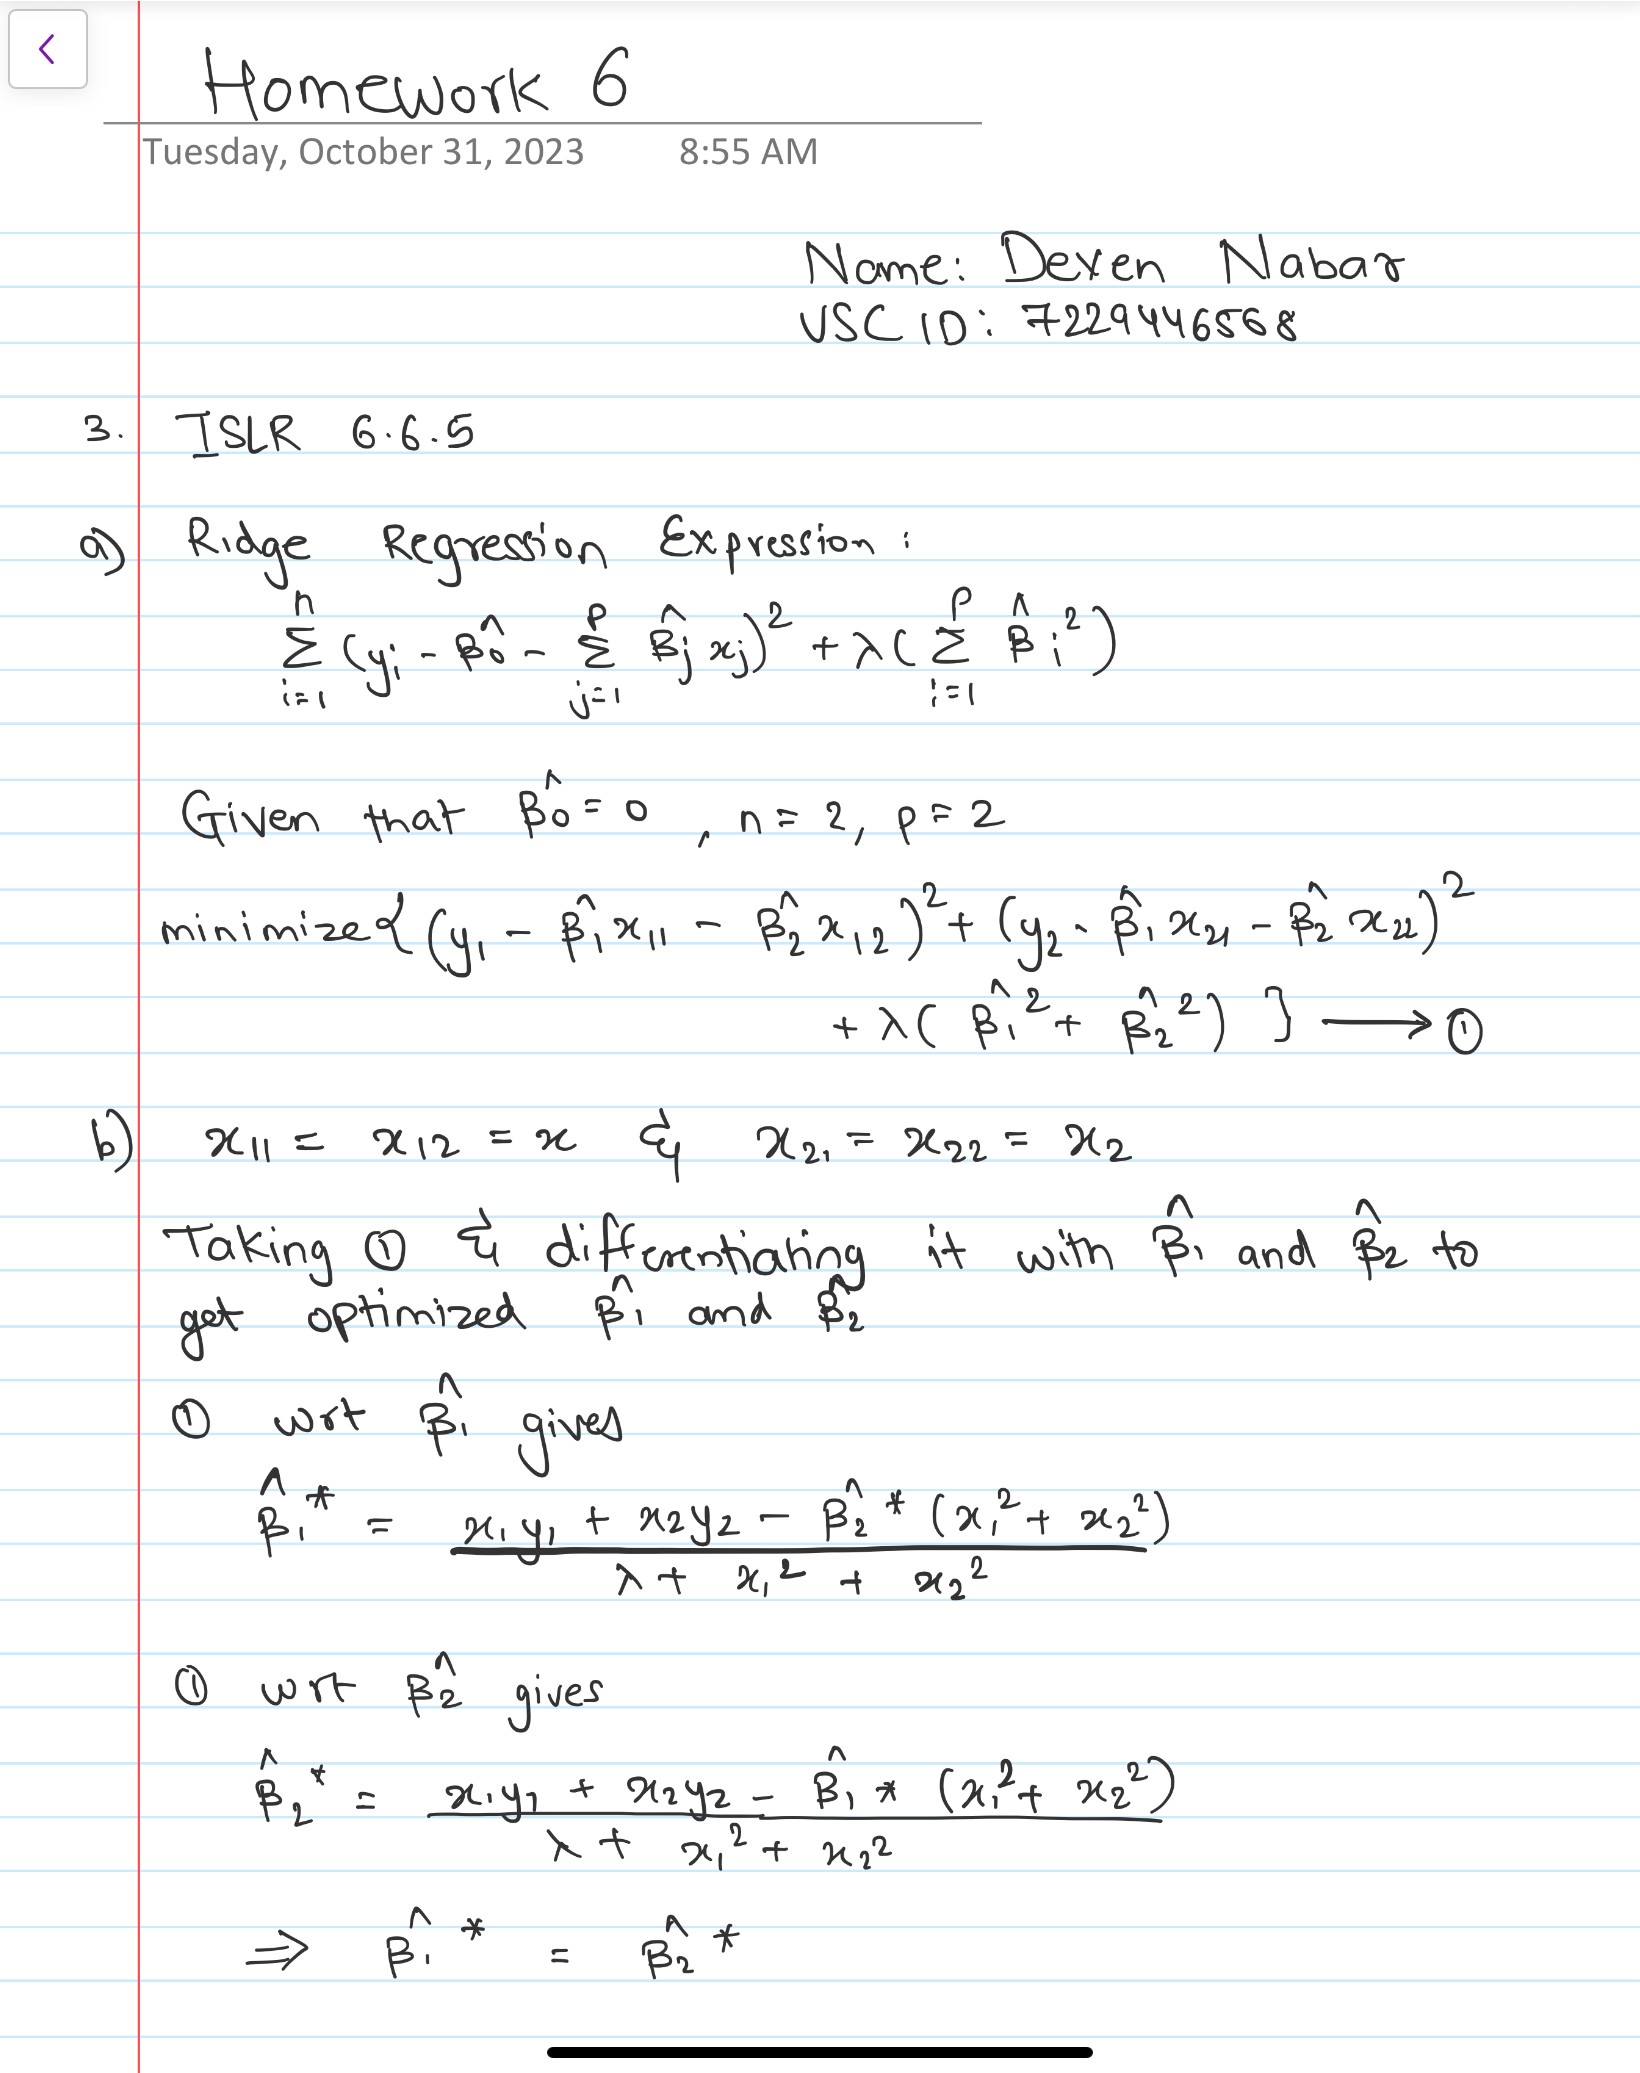 Homework 6
Tuesday, October 31, 2023 8:55 AM
Name: Dexen Nabar
USC ID: 7229446568
3. ISLR 6.6.5
a) Ridge Regression Expression:
n Σ i=1 (yi - β̂0 - p Σ j=1 β̂j xj)² + λ( p Σ i=1 β̂i²)
Given that β̂0 = 0, n = 2, p = 2
minimize{(y₁ - β̂₁x₁₁ - β̂₂x₁₂)² + (y₂ - β̂₁x₂₁ - β̂₂x₂₂)²
+ λ(β̂₁² + β̂₂²) } ⟶ ①
b) x₁₁ = x₁₂ = x & x₂₁ = x₂₂ = x₂
Taking ① & differentiating it with β̂₁ and β̂₂ to
get optimized β̂₁ and β̂₂
① wrt β̂₁ gives
β̂₁* = x₁y₁ + x₂y₂ - β̂₂* (x₁² + x₂²)
λ + x₁² + x₂²
① wrt β̂₂ gives
β̂₂* = x₁y₁ + x₂y₂ - β̂₁* (x₁² + x₂²)
λ + x₁² + x₂²
⇒ β̂₁* = β̂₂*